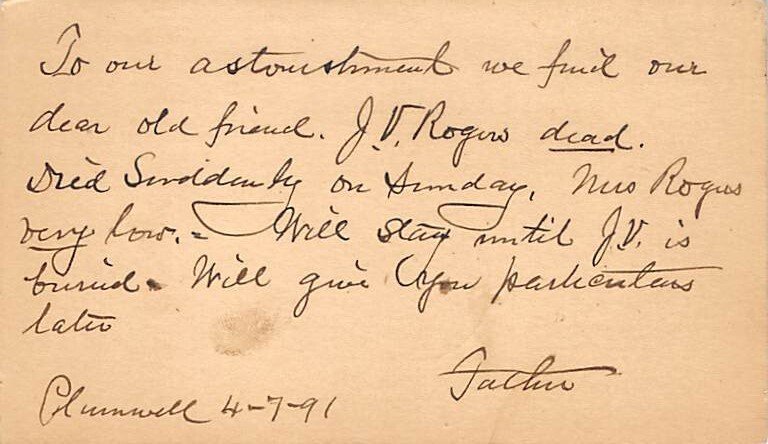 To our astonishment we find our
dear old friend. J.V. Rogers dead.
Died Suddenly on Sunday, Mrs Rogers
very low. = Will stay until J.V. is
buried. Will give you particulars
later
Father
4-7-91